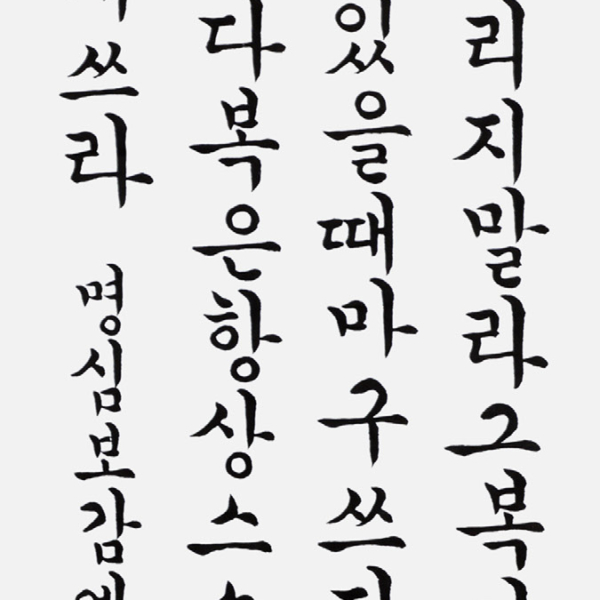 리지말라그복
있을때마구쓰
다복은항상스
쓰라 명심보감